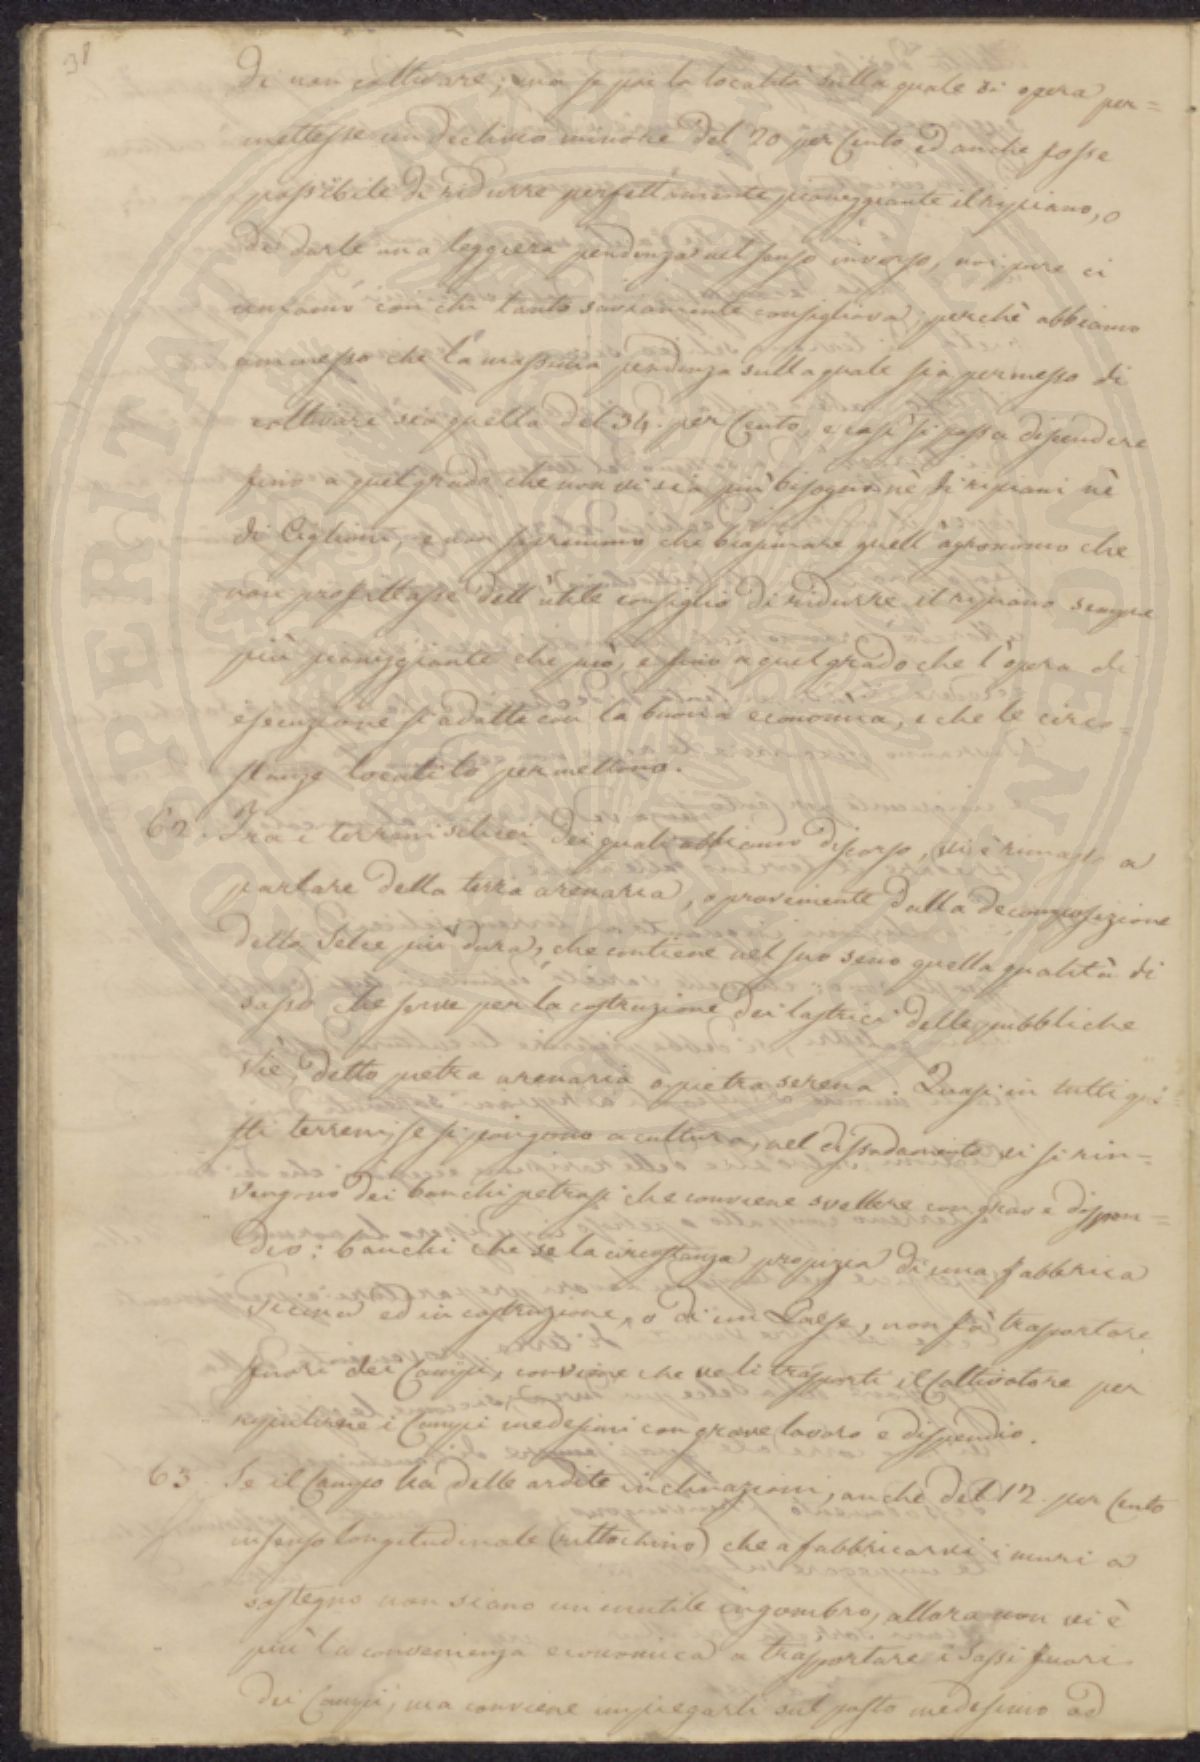 31
di non coltivare; ma se poi la località sulla quale si opera per=
mettesse un declivio minore del 20 per Cento ed anche fosse
possibile di ridurre perfettamente pianeggiante il ripiano, o
di darle una leggiera pendenza nel senso inverso, noi pure ci
uniamo con chi tanto saviamente consigliava; perchè abbiamo
ammesso che la massima pendenza sulla quale sia permesso di
coltivare sia quella del 34. per Cento, e così si possa discendere
fino a quel grado che non vi sia più bisogno nè di ripiani nè
di Ciglioni, e non sapremmo che biasimare quell'agronomo che
non profittasse dell'utile consiglio di ridurre il ripiano sempre
più pianeggiante che può, e fino a quel grado che l'opera di
esecuzione si adatti con la buona economia, e che le circo=
stanze località permettono.
62. Fra i terreni silicei dei quali abbiamo discorso, vi è rimasto a
parlare della terra arenaria, o proveniente dalla decomposizione
della Selce più dura, che contiene nel suo seno quella qualità di
sasso che serve per la costruzione dei lastrici delle pubbliche
vie, detto pietra arenaria o pietra serena. Quasi in tutti que=
sti terreni, se si pongono a cultura, nel dissodamento vi si rin=
vengono dei banchi petrosi che conviene svellere con grave dispen=
dio: banchi che se la circostanza propizia di una fabbrica
vicina ed in costruzione, o di un Paese, non fà trasportare
fuori dei Campi, conviene che ve li trasporti il Coltivatore per
ripulirne i Campi medesimi con grave lavoro e dispendio.
63. Se il Campo ha delle ardite inclinazioni, anche del 12. per Cento
in senso longitudinale (rittochino) che a fabbricarvi i muri a
sostegno non siano un inutile ingombro, allora non vi è
più la convenienza economica a trasportare i sassi fuori
dei Campi; ma conviene impiegarli sul posto medesimo ad